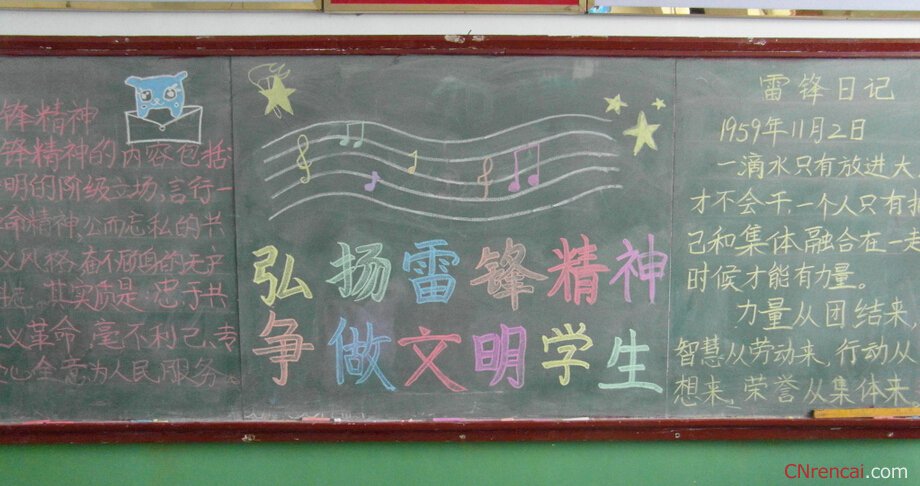 锋精神
锋精神的内容包括:
明的阶级立场,言行一
命精神,公而忘私的共
义风格,奋不顾身的无产
其实质是:忠于共
义革命,毫不利己、专
心全意为人民服务。
弘扬雷锋精神
争做文明学生
雷锋日记
1959年11月2日
一滴水只有放进大
才不会干,一个人只有
己和集体融合在一起
时候才能有力量。
力量从团结来,
智慧从劳动来,行动从
想来,荣誉从集体来。
CNrencai.com